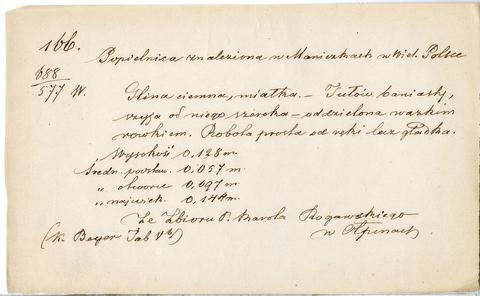 166.
Popielnica znaleziona w Maniczkach w Wiel. Polsce
688
577 W.
Glina ciemna, miałka. – Tułów baniasty,
szyja od niego szeroka – oddzielona wązkim
rowkiem. Robota prosta od ręki lecz gładka.
Wysokość 0,128 m.
Średn. podstaw. 0,057 m.
„ otworu 0,097 m.
„ najwięk. 0,144 m.
Ze Zbioru P. Karola Rogawskiego
(K. Beyer Tab V b) w Ołpinach